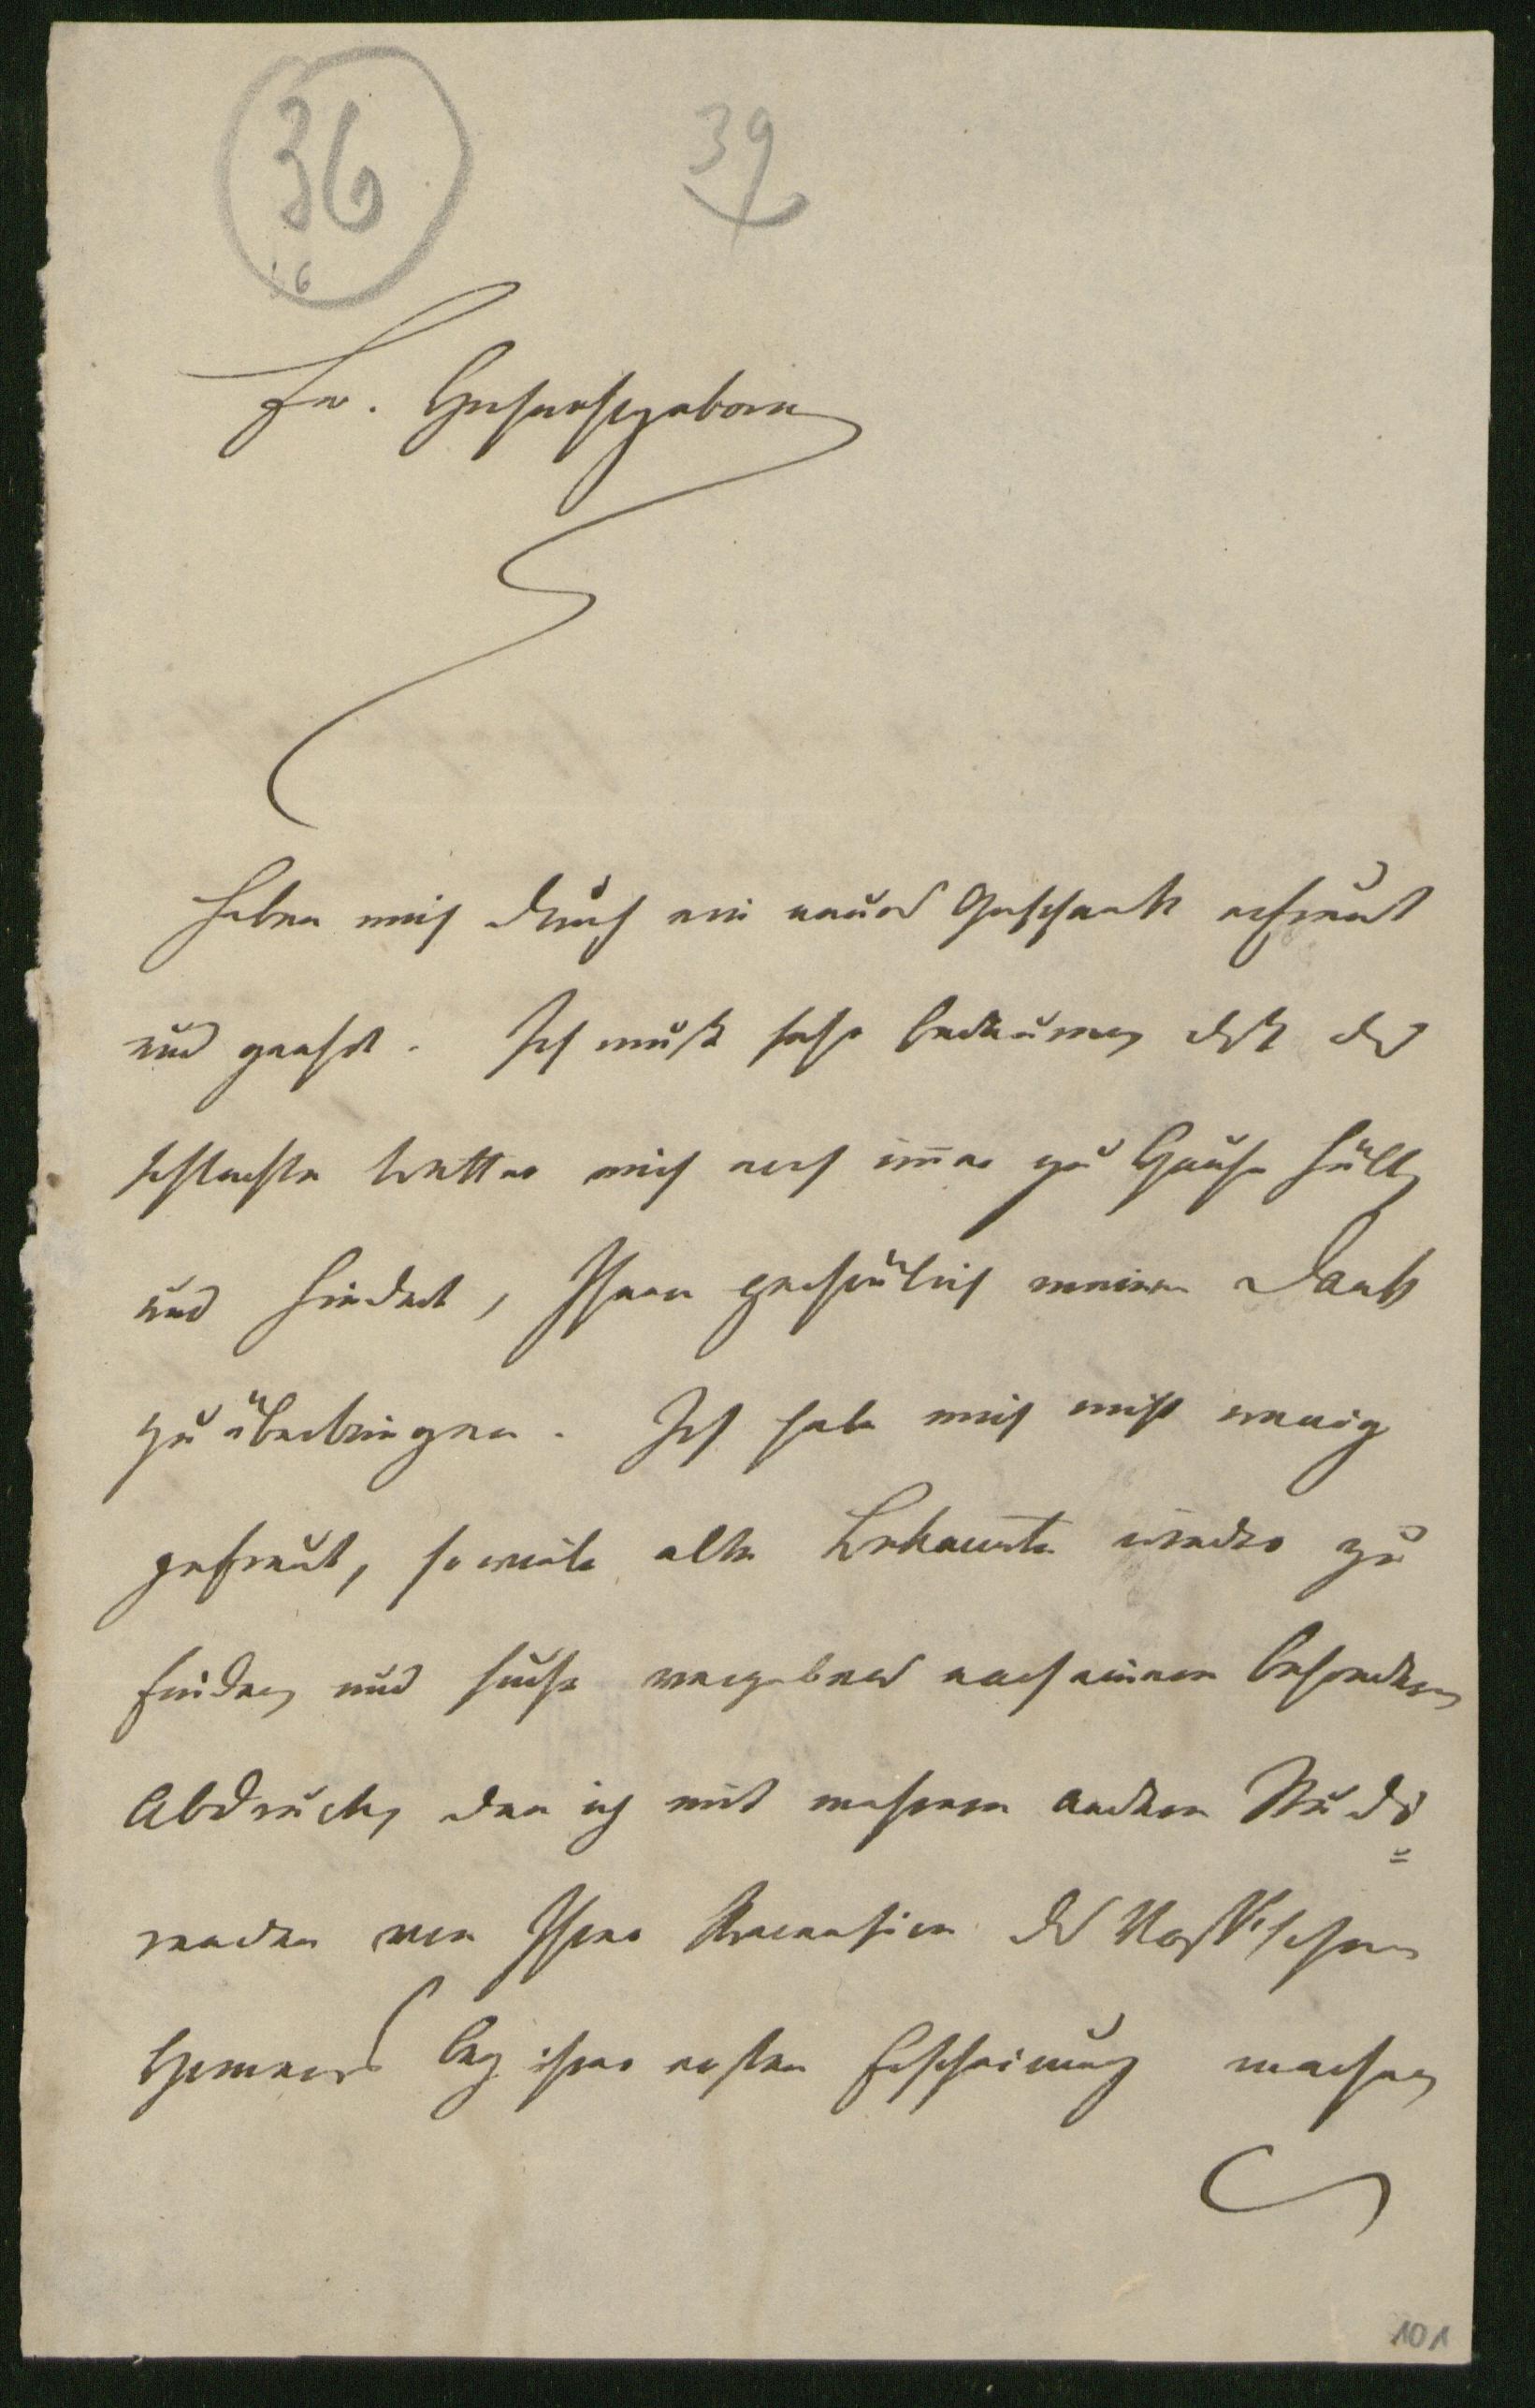 36
39
36
Ew. Hochwohlgeboren
haben mich durch ein neues Geschenk erfreut
und geehrt. Ich muß sehr bedauern daß das
schlechte Wetter mich noch immer zu Hause hält
und hindert, Ihnen persönlich meinen Dank
zu überbringen. Ich habe mich nicht wenig
gefreut, so viele alte Bekannte wieder zu
finden und suche vergebens nach einem besondern
Abdruck, den ich mit mehreren andern Studi=
renden von Ihrer Recension des Voßischen
Homers bey ihrer ersten Erscheinung machen
101